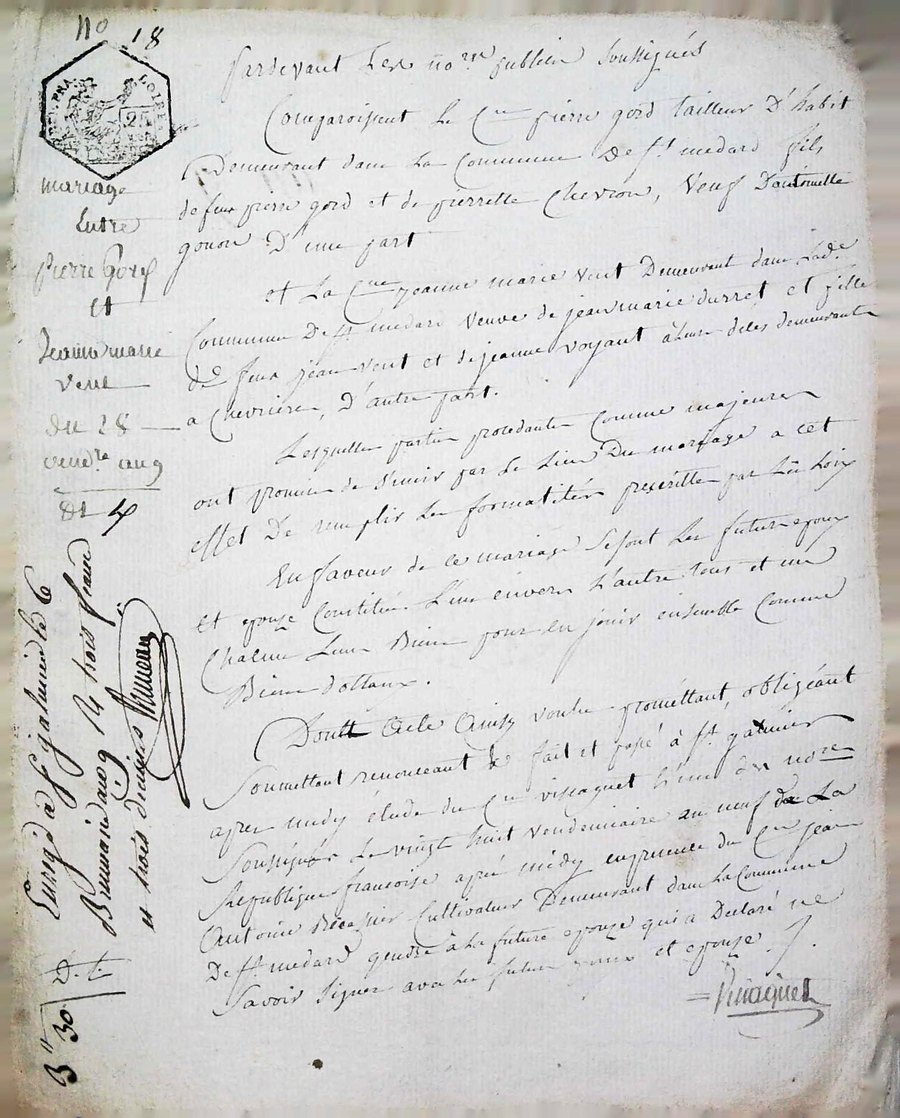 no 18
LOIRE
25
mariage
Entre
pierre Gord
et
Jeanne marie
vent
du 28
vend.re an 9
Dt 4
Enrigé a St galmier le 6
Brumaire an 9 14 trois francs
et trois decimes
D. t.
3" 30
pardevant Les no.res publics Soussignés
Comparoissent Le C.en pierre gord tailleur D'habit
Demeurant dans La Commune De St medard fils
de feu pierre gord et de pierrette Chevron, Veuf D'antoinette
gonon D'une part
et La C.ne jeanne marie vent Demeurant dans Lad.e
Commune De St medard veuve de jean marie durret et fille
de feux jean vent et de jeanne voyant a Leur deces demeurants
a Chevrieres, D'autre part.
Lesquelles parties procedantes Comme majeures
ont promis de S'unir par Le Lien Du mariage a cet
effet De remplir Les formalités prescrittes par Les Loix
En faveur de ce mariage Se font Les futurs epoux
et epouse Constitués L'un envers L'autre tous et un
Chacun Leurs Biens pour en jouir ensemble Comme
Biens dottaux.
Dont Acte Ainsy voulu promettant, obligeant
Soumettant renonceant & fait et passé à St galmier
apres midy étude du C.en viscaquet L'un des no.res
Soussignés Le vingt huit Vendemiaire an neuf de La
Republique francoise après midy en presence du C.en jean
Antoine Cultivateur Demeurant dans La Commune
De St medard gendre à La future epouze qui a Declaré ne
Savoir Signer avec Les futurs epoux et epouze /.